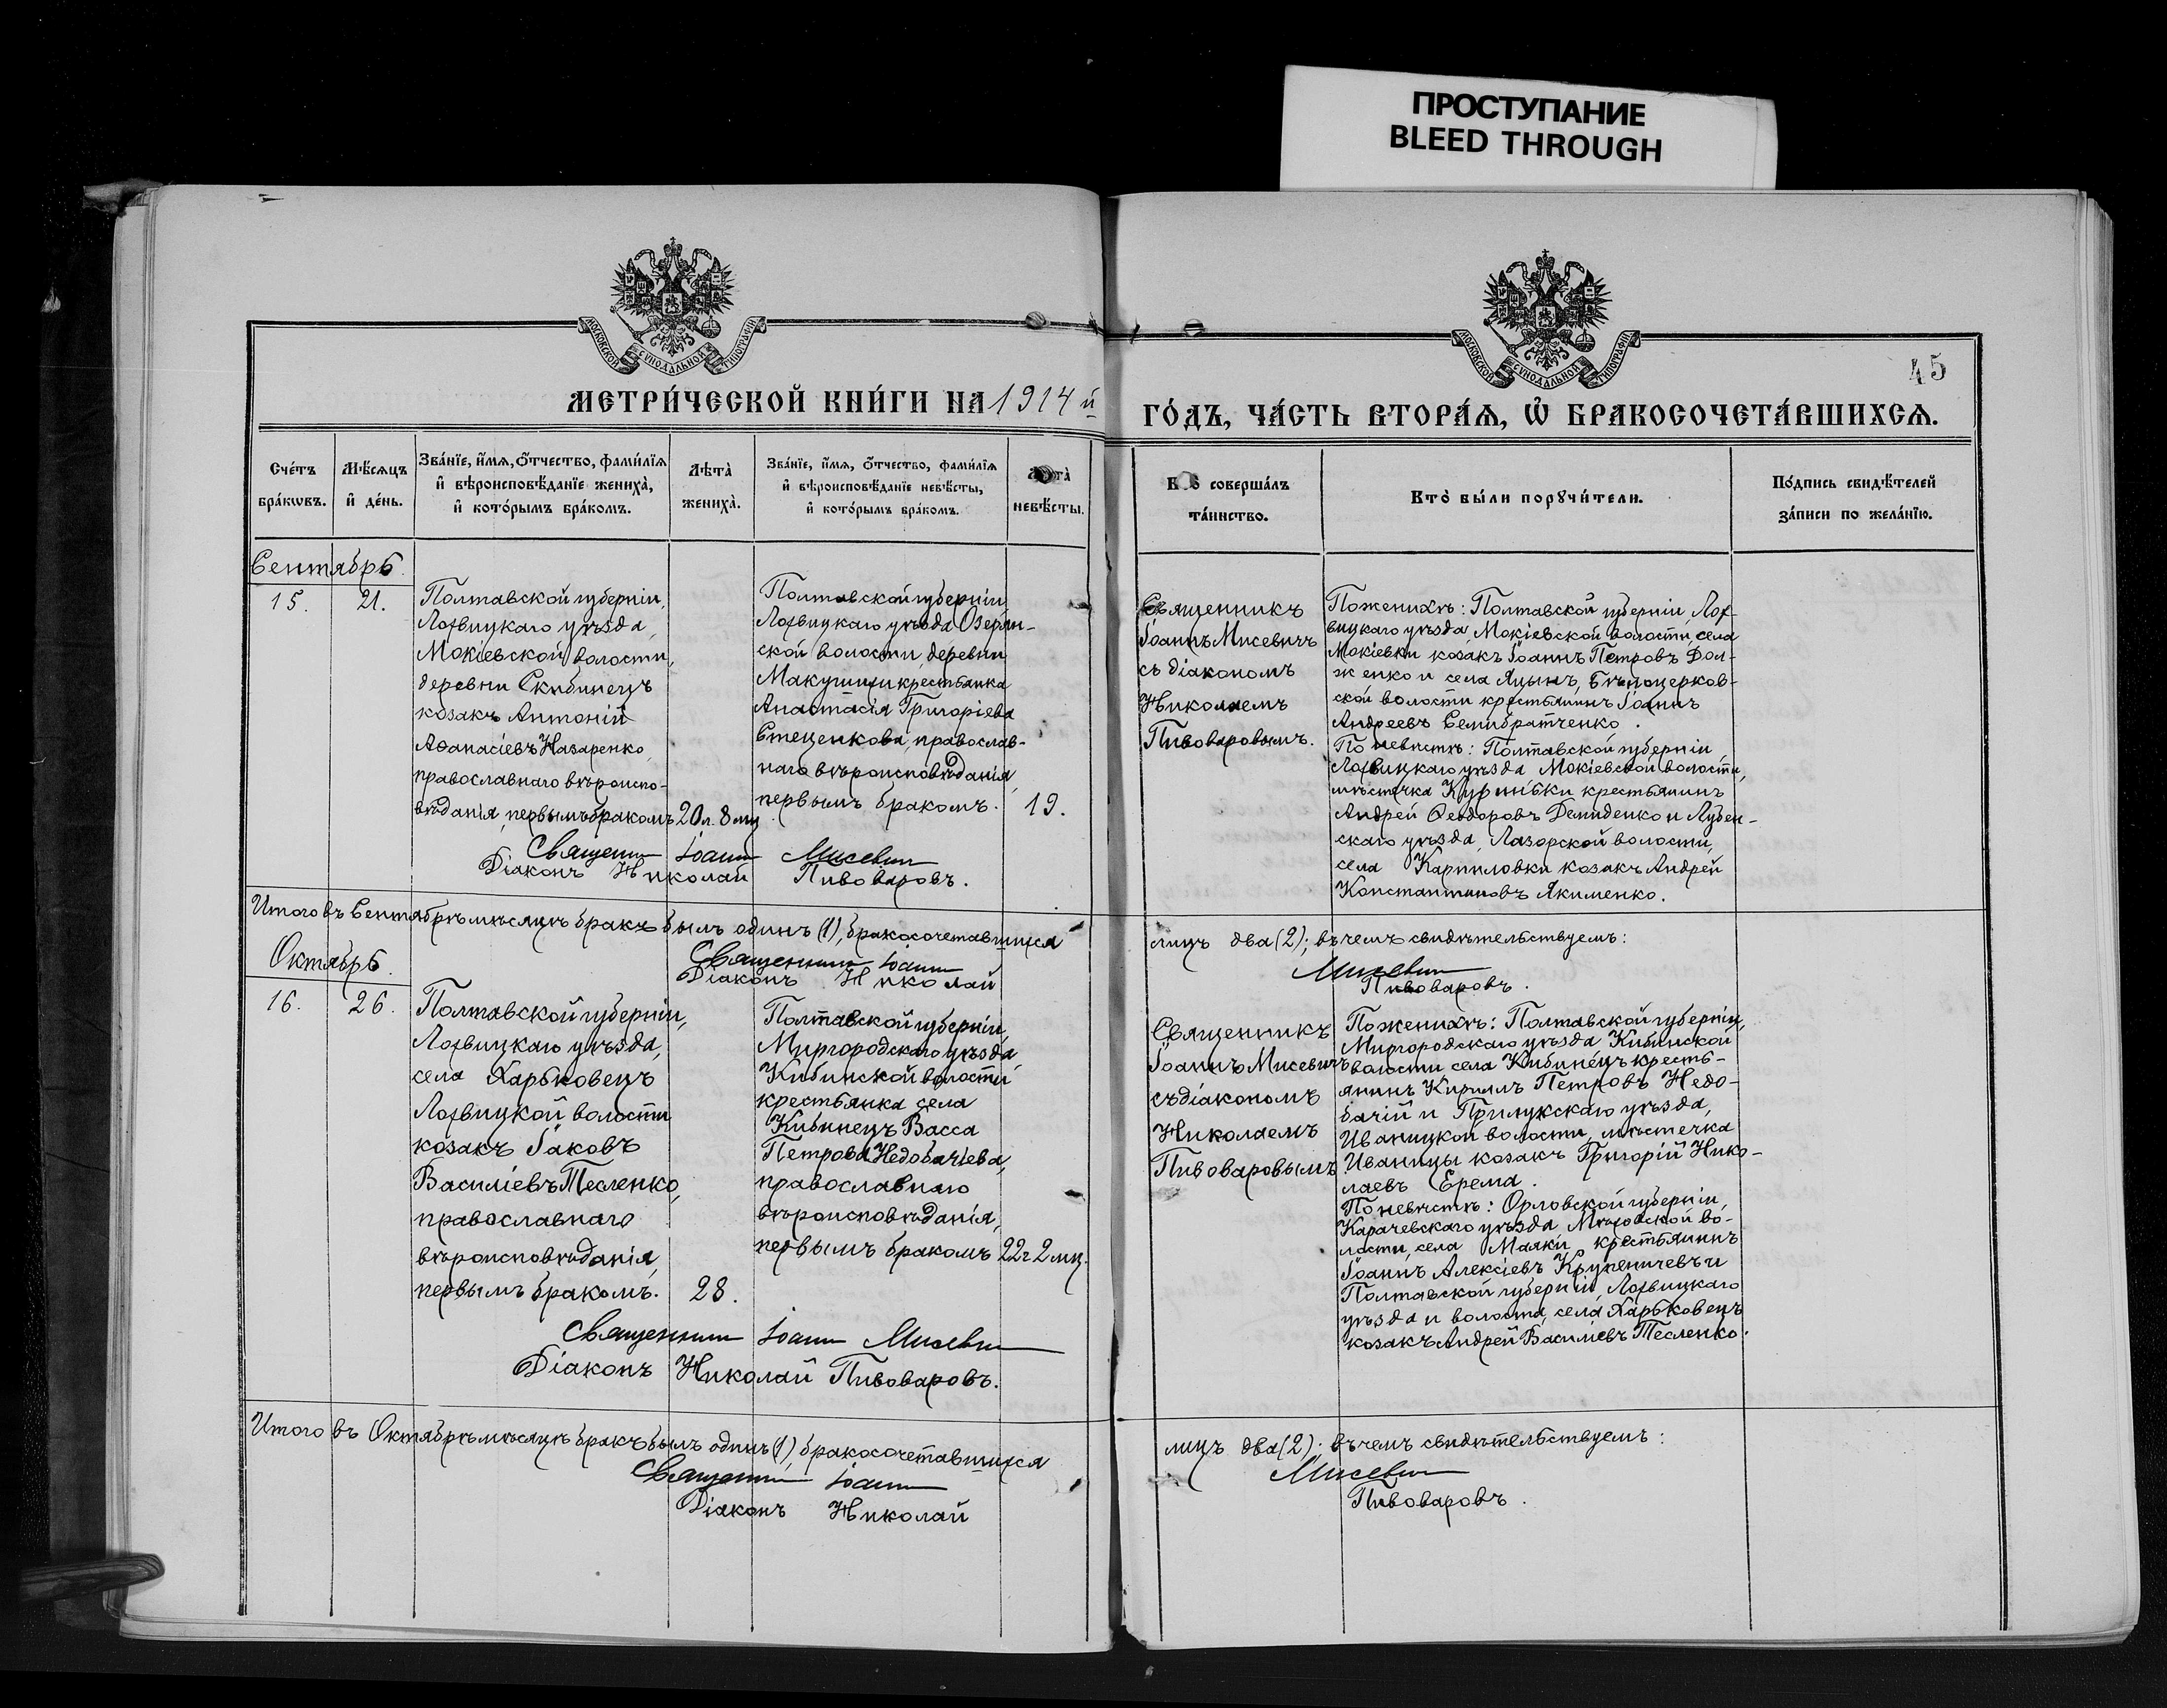 ПРОСТУПАНИЕ
BLEED THROUGH
МОСКОВСКОЙ СѴНОДАЛЬНОЙ ТИПОГРАФІИ
МОСКОВСКОЙ СѴНОДАЛЬНОЙ ТИПОГРАФІИ
45
МЕТРИ́ЧЕСКОЙ КНИ́ГИ НА 1914 й
ГО́ДЪ, ЧА́СТЬ ВТОРА́Ѧ, Ѡ҆ БРАКОСОЧЕТА́ВШИХСѦ.
Сче́тъ
бра́кѡвъ.
Мѣ́сѧцъ
и҆ де́нь.
Зва́нїе, и҆́мѧ, ѻ҆́тчество, фами́лїѧ
и҆ вѣроисповѣ́данїе жениха̀,
и҆ кото́рымъ бра́комъ.
Лѣта̀
жениха̀.
Зва́нїе, и҆́мѧ, ѻ҆́тчество, фами́лїѧ
и҆ вѣроисповѣ́данїе невѣ́сты,
и҆ кото́рымъ бра́комъ.
Лѣта̀
невѣ́сты.
Кто̀ соверша́лъ
та́инство.
Кто̀ бы́ли порꙋчи́тели.
По́дпись свидѣ́телей
за́писи по жела́нїю.
Сентябрь.
15.
21.
Полтавской губерніи,
Лохвицкаго уѣзда,
Мокіевской волости,
деревни Скибинецъ
козакъ Антоній
Аѳанасіевъ Назаренко,
православнаго вѣроиспо-
вѣданія, первымъ бракомъ
20 л. 8 мц
Полтавской губерніи
Лохвицкаго уѣзда Озерян-
ской волости, деревни
Макушихи крестьянка
Анастасія Григоріева
Стеценкова, православ-
наго вѣроисповѣданія,
первымъ бракомъ.
19.
Священникъ
Іоаннъ Мисевичъ
съ діакономъ
Николаемъ
Пивоваровымъ.
По женихѣ: Полтавской губерніи, Лох-
вицкаго уѣзда, Мокіевской волости, села
Мокіевки козакъ Іоаннъ Петровъ Дол-
женко и села Яцынъ, Бѣлоцерков-
ской волости крестьянинъ Іоаннъ
Андреевъ Семибратченко.
По невѣстѣ: Полтавской губерніи
Лохвицкаго уѣзда Мокіевской волости,
мѣстечка Куриньки крестьянинъ
Андрей Ѳеодоровъ Демиденко и Лубен-
скаго уѣзда, Лазорской волости,
села Карпиловки козакъ Андрей
Константиновъ Якименко.
Священникъ Іоаннъ Мисевичъ
Діаконъ Николай Пивоваровъ.
Итого въ Сентябрѣ мѣсяцѣ бракъ былъ одинъ (1), бракосочетавшихся
лицъ два (2); въ чемъ свидѣтельствуемъ:
Священникъ Іоаннъ Мисевичъ
Діаконъ Николай Пивоваровъ.
Октябрь.
16.
26.
Полтавской губерніи,
Лохвицкаго уѣзда,
села Харьковецъ
Лохвицкой волости
козакъ Іаковъ
Василіевъ Тесленко,
православнаго
вѣроисповѣданія,
первымъ бракомъ.
28.
Полтавской губерніи
Миргородскаго уѣзда
Кибинской волости
крестьянка села
Кибинецъ Васса
Петрова Недобачіева,
православнаго
вѣроисповѣданія,
первымъ бракомъ
22 г 2 мц.
Священникъ
Іоаннъ Мисевичъ
съ діакономъ
Николаемъ
Пивоваровымъ
По женихѣ: Полтавской губерніи,
Миргородскаго уѣзда Кибинской
волости села Кибинецъ кресть-
янинъ Кириллъ Петровъ Недо-
бачій и Прилукскаго уѣзда,
Иваницкой волости, мѣстечка
Иваницы козакъ Григорій Нико-
лаевъ Ерема.
По невѣстѣ: Орловской губерніи,
Карачевскаго уѣзда во-
лости, села Маяки крестьянинъ
Іоаннъ Алексіевъ Крупеничевъ и
Полтавской губерніи, Лохвицкаго
уѣзда и волости, села Харьковецъ
козакъ Андрей Василіевъ Тесленко.
Священникъ Іоаннъ Мисевичъ
Діаконъ Николай Пивоваровъ.
Итого въ Октябрѣ мѣсяцѣ бракъ былъ одинъ (1), бракосочетавшихся
лицъ два (2); въ чемъ свидѣтельствуемъ:
Священникъ Іоаннъ Мисевичъ
Діаконъ Николай Пивоваровъ.